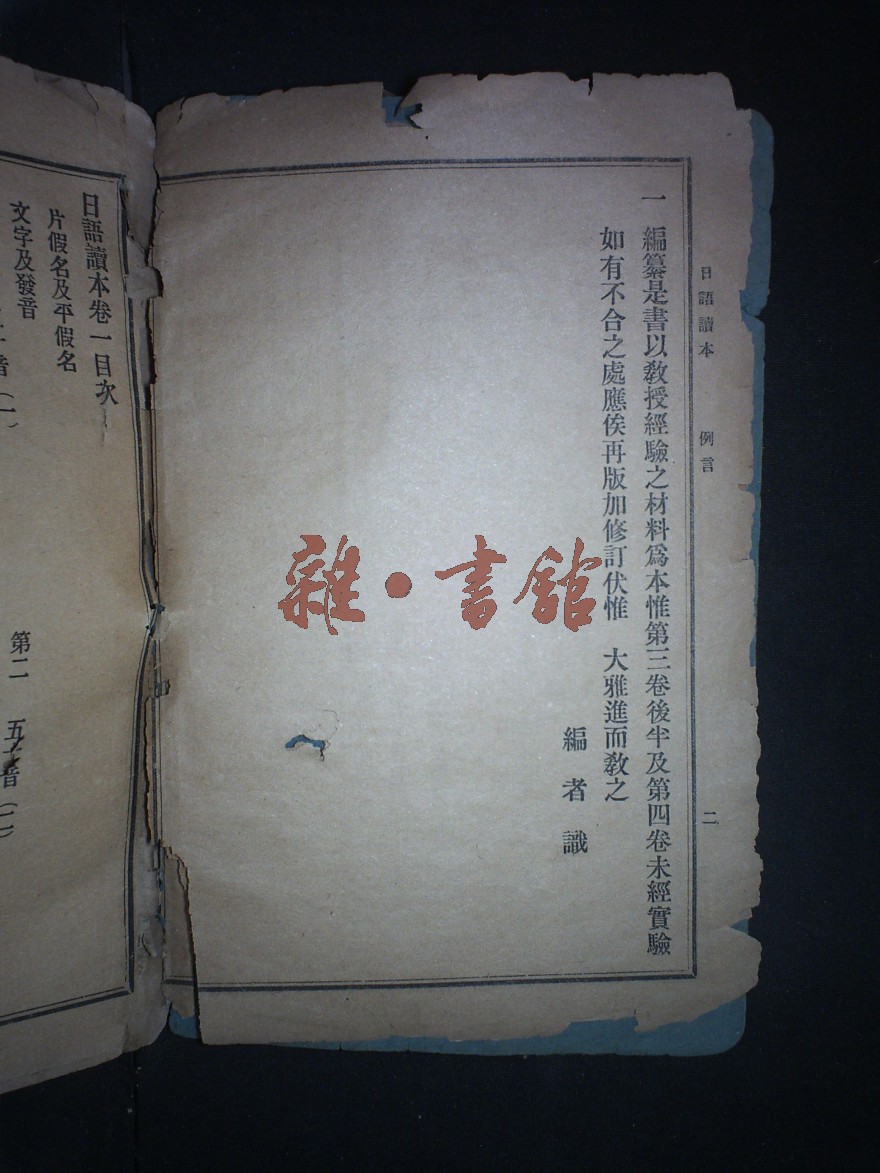 日語讀本　例言　二
一　編纂是書以敎授經驗之材料爲本惟第三卷後半及第四卷未經實驗
如有不合之處應俟再版加修訂伏惟　大雅進而敎之
編者識
日語讀本卷一目次
片假名及平假名
文字及發音
音（一）
第二　五十音（二）
雜·書館